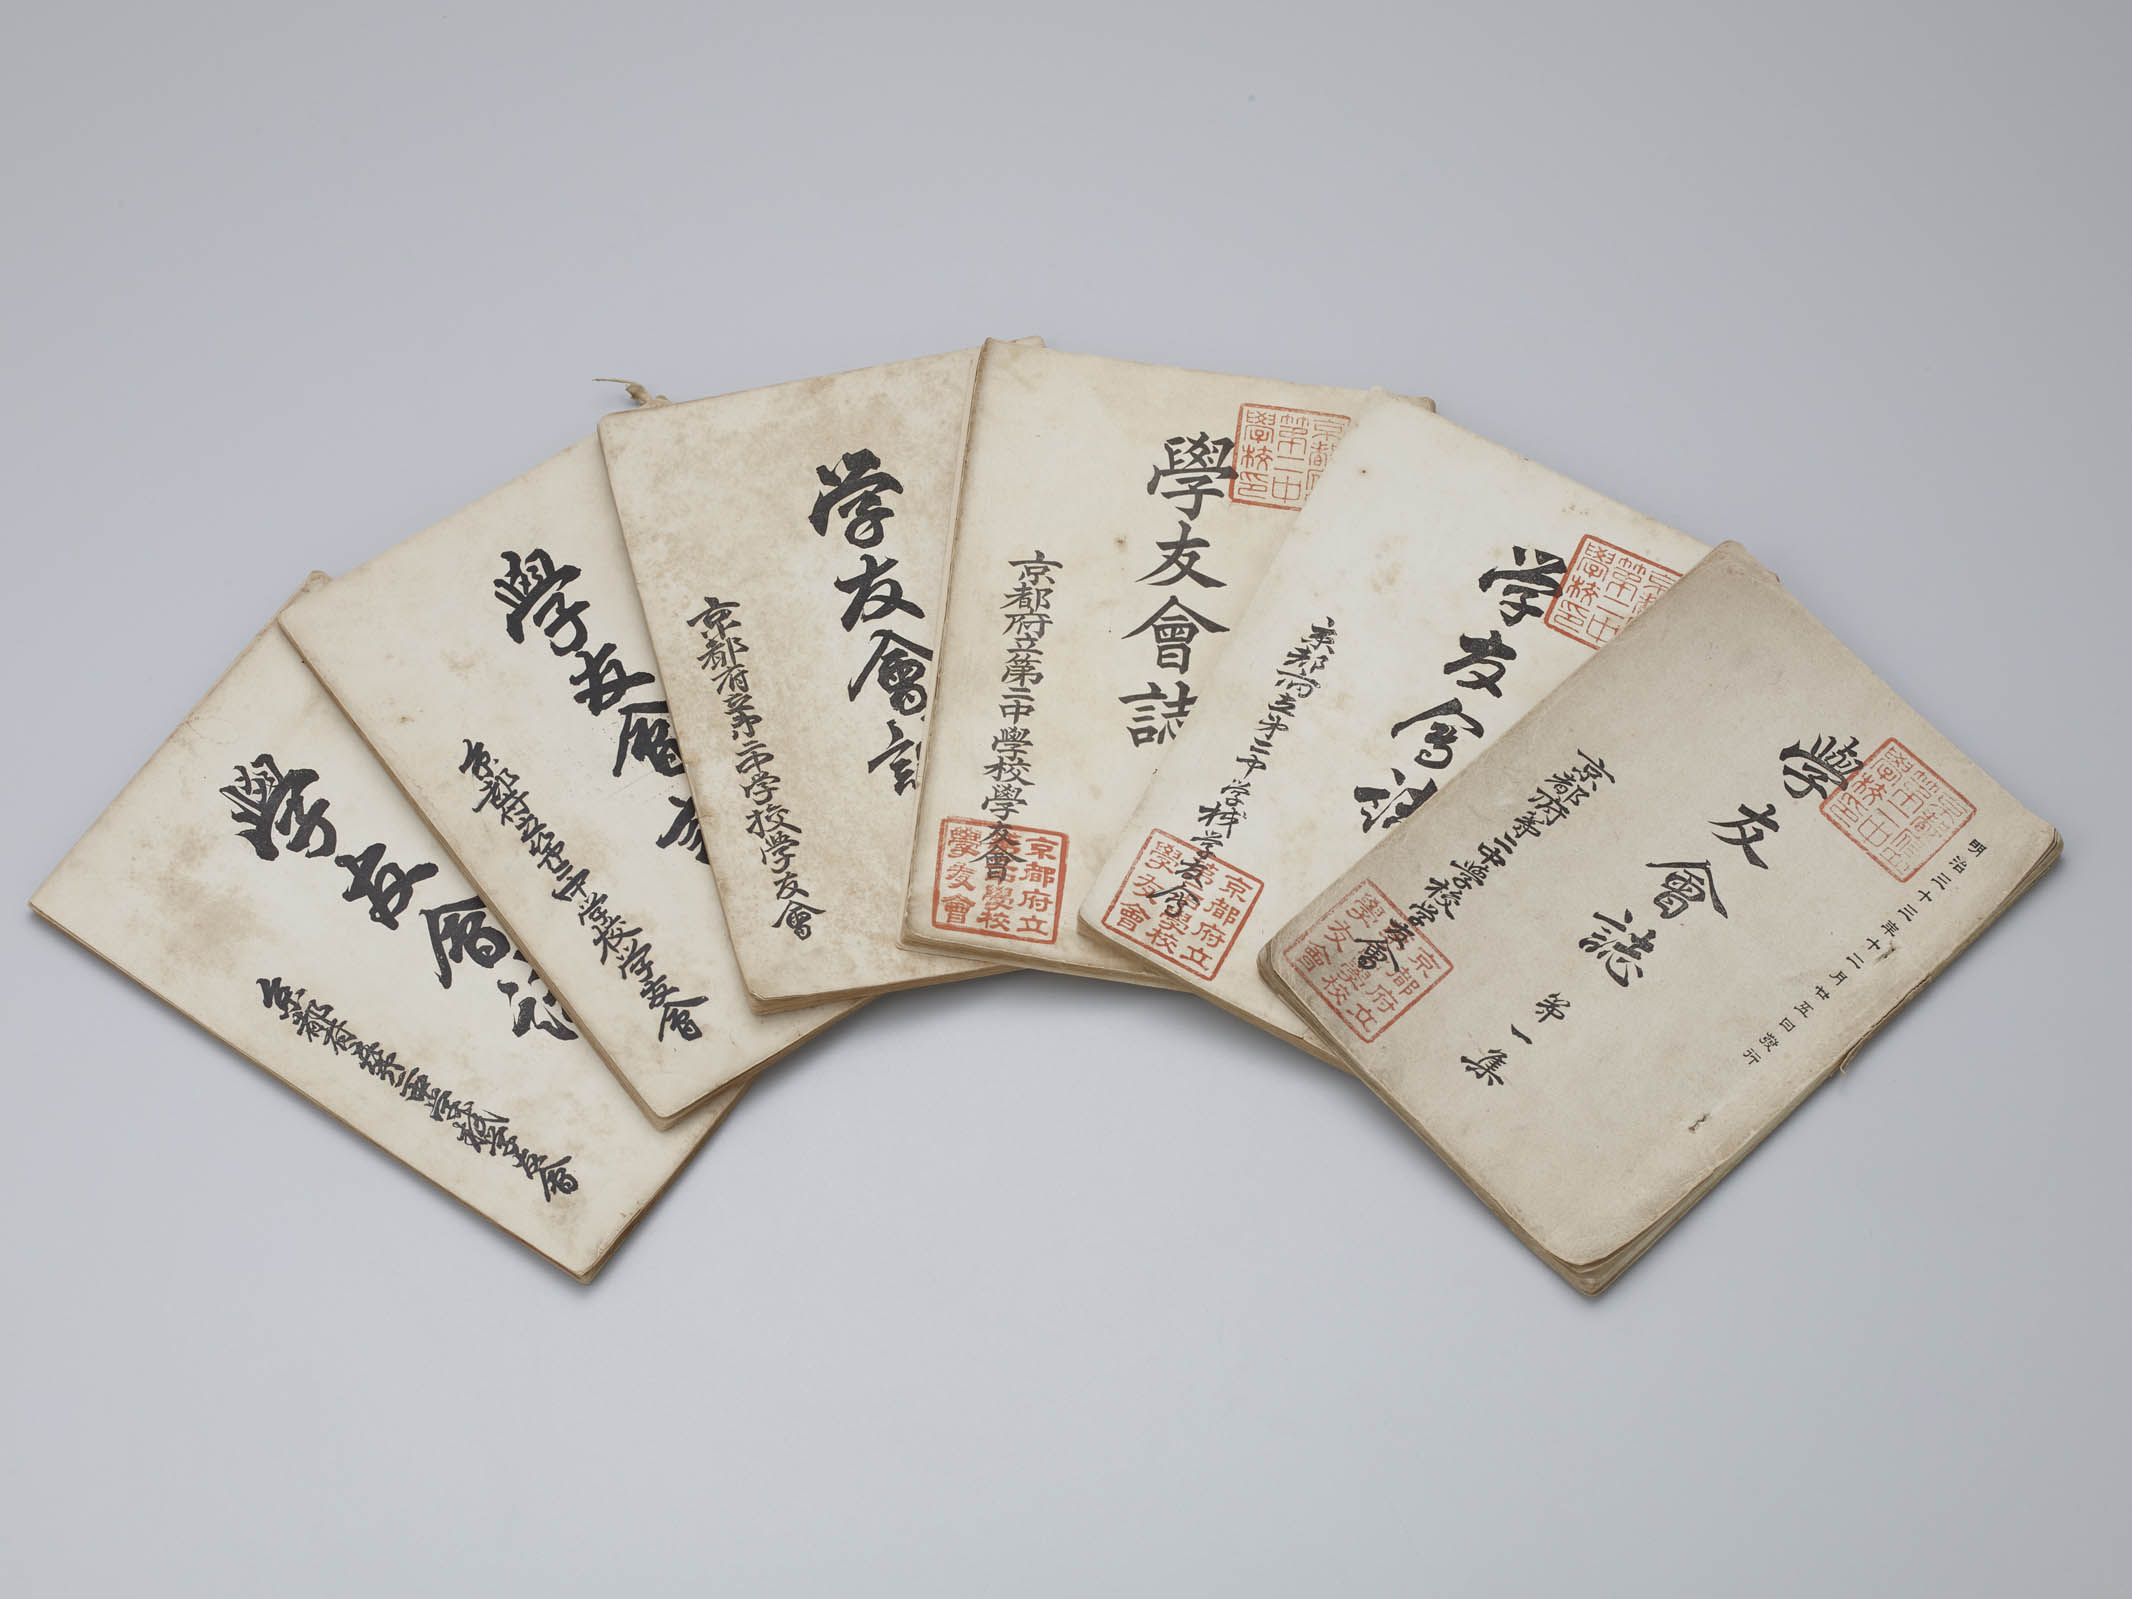 明治三十三年十二月廿五日發行
學友會誌
第一集
京都府第二中學校学友會
京都府
第二中
學校印
京都府立
第二中學校
學友會
学友會誌
京都府立第二中学校学友會
第二中
學校印
京都府立
學友會
學友會誌
京都府立第二中學校學友會
京都府
第二中
學校印
京都府立
學友會
学友會
京都府立第二中学校学友會
學友會
京都府立第二中学校学友會
學友會
京都府第二中学校学友會